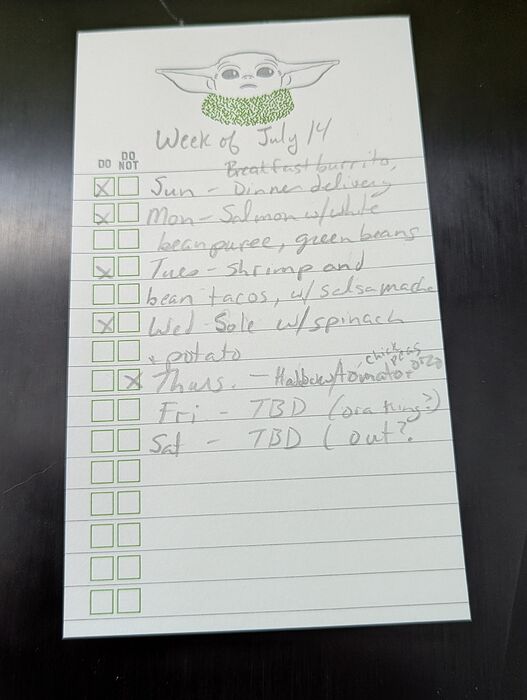 Week of July 14
DO DO NOT
Breakfast burrito,
Sun - Dinner delivery
Mon - Salmon w/white
bean puree, green beans
Tues - shrimp and
bean tacos, w/ salsa mache
Wed - Sole w/spinach
+ potato
chick peas
Thurs. - w/tomato, orzo
Fri - TBD (ora King?)
Sat - TBD ( out?